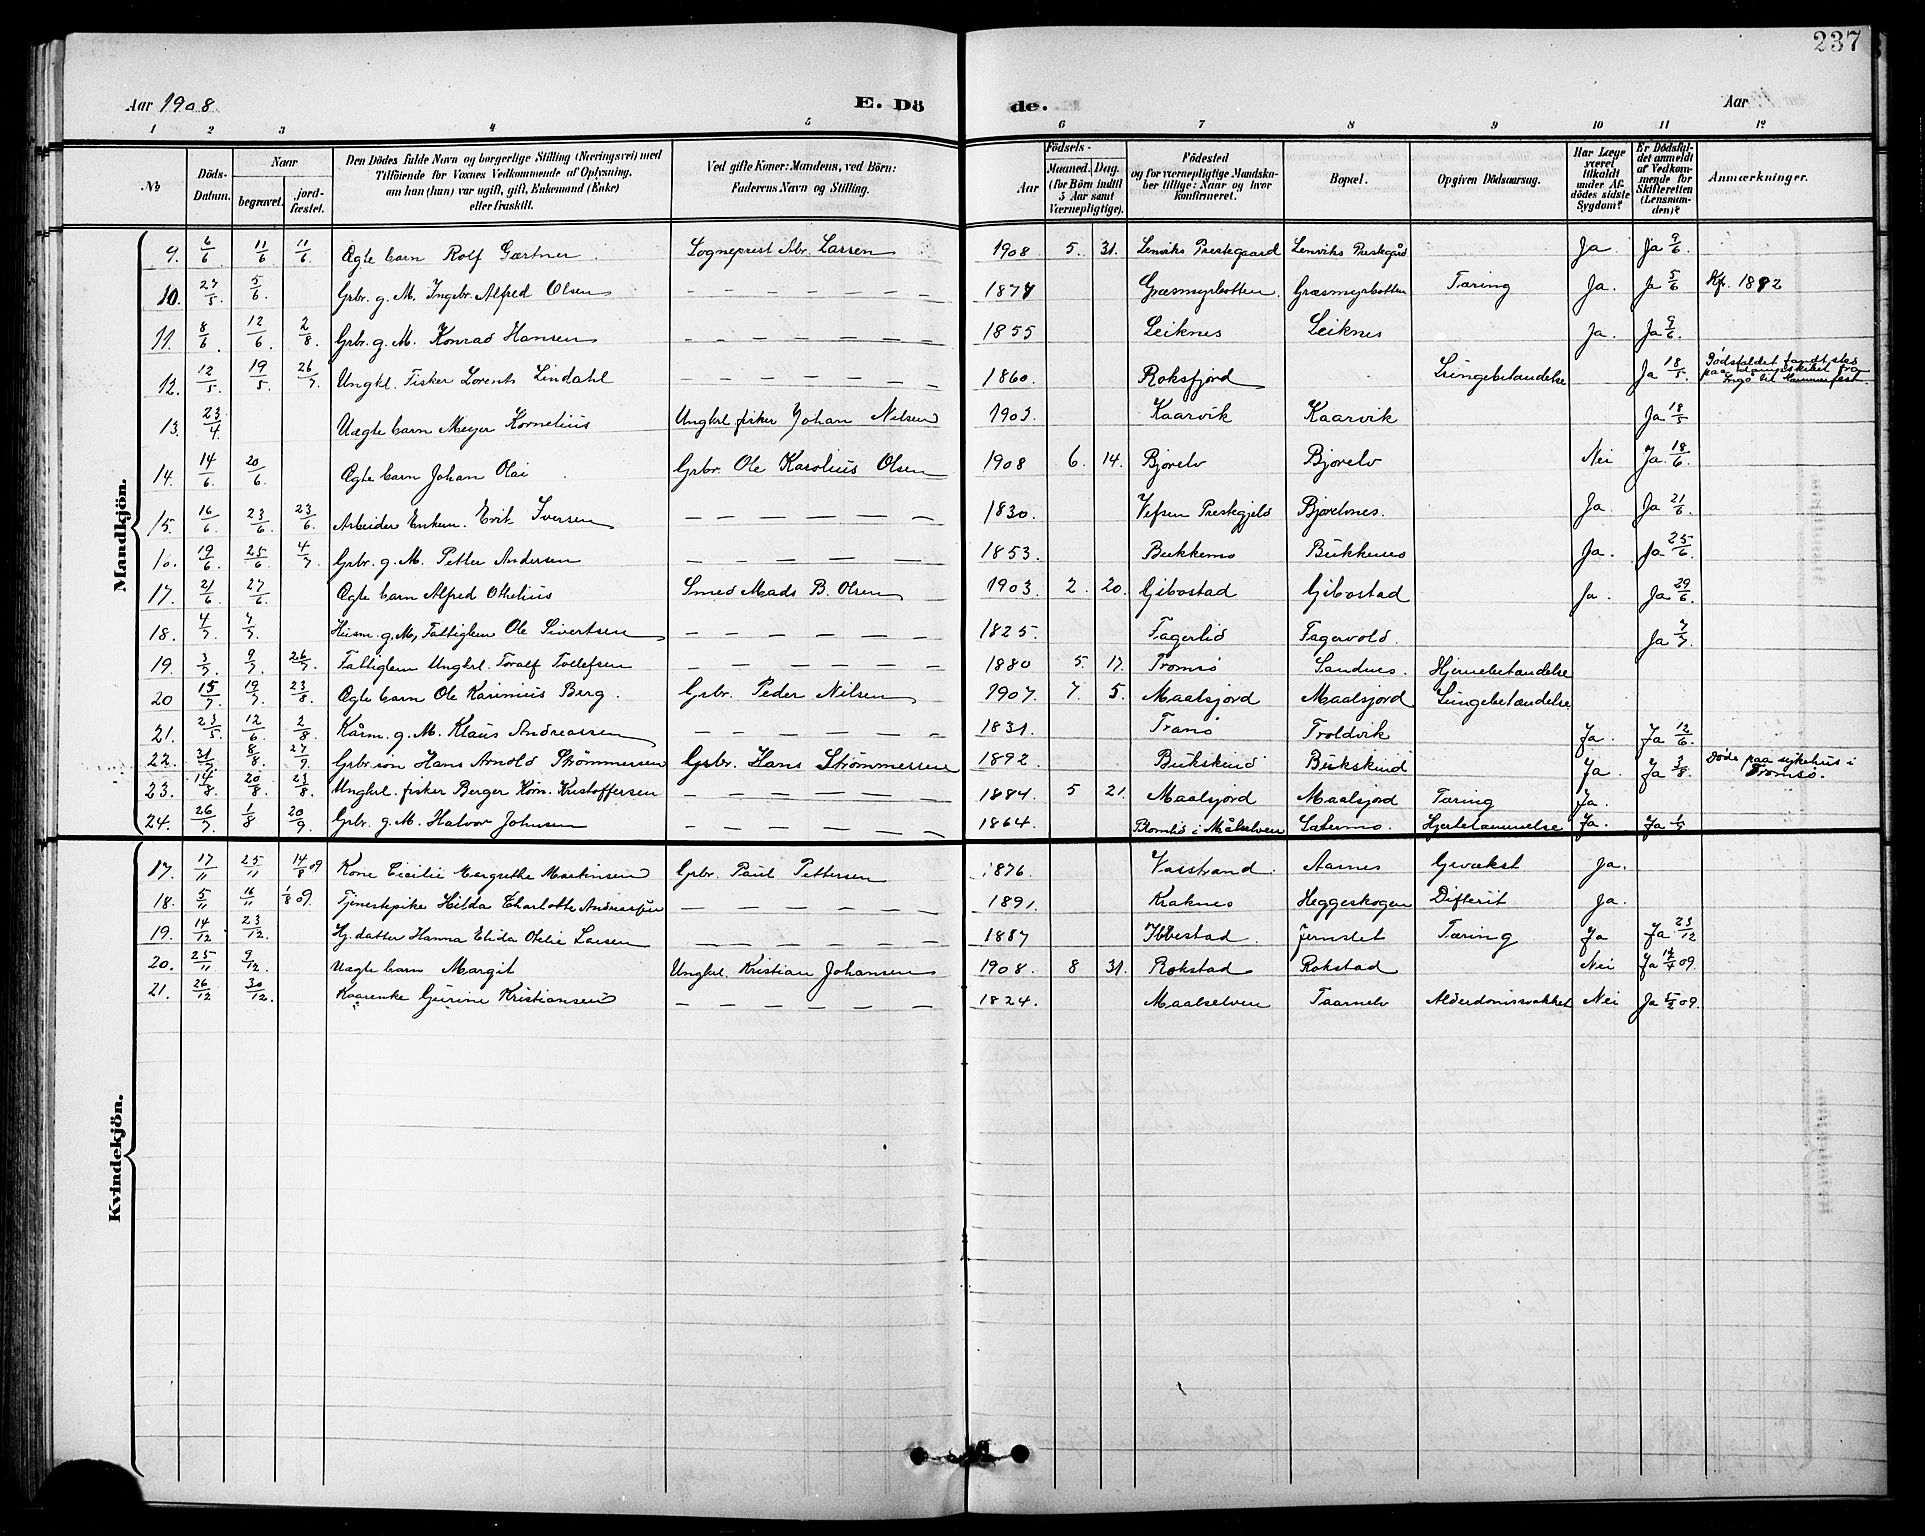 237
Aar 1908.
E. Dö
de.
Aar
1 2 3 4 5 6 7 8 9 10 11 12
No
Döds-Datum.
Naar
begravet.
jordfæstet.
Den Dödes fulde Navn og borgerlige Stilling (Næringsvei) med
Tilföiende for Voxnes Vedkommende af Oplysning,
om han (hun) var ugift, gift, Enkemand (Enke)
eller fraskilt.
Ved gifte Koner: Mandens, ved Börn:
Faderens Navn og Stilling.
Födsels-
Aar
Maaned. Dag.
(for Börn indtil
5 Aar samt
Værnepligtige).
Födested
og for værnepligtige Mandskaber tillige: Naar og hvor
konfirmeret.
Bopæl.
Opgiven Dödsaarsag.
Har Læge
været
tilkaldt
under Afdödes sidste
Sygdom?
Er Dödsfaldet anmeldt
af Vedkommende for
Skifteretten
(Lensmanden)?
Anmærkninger.
Mandkjön.
9. 6/6 11/6 11/6 Ægte barn Rolf Gærtner Sogneprest Abr. Larsen 1908 5. 31. Lenviks Prestegaard Lenviks Prestegård Ja. Ja 9/6
10. 27/5. 5/6. Grbr. g. M. Ingebr. Alfred Olsen — 1874 Græsmyrbotten. Græsmyrbotten Tæring Ja. Ja 5/6 Kp. 1892
11. 8/6 12/6. 2/8 Grbr. g. M. Konrad Hansen — 1855 Leiknes Leiknes Ja. Ja 9/6.
12. 12/5 19/5. 26/7 Ungkl. Fisker Lorents Lindahl — 1860. Roksfjord Lungebetændelse Ja 18/5. Dödsfaldet fandt sted paa dampskibet fra Ingö til Hammerfest
13. 23/4 Uægte barn Meyer Kornelius Ungkrl fisker Johan Nilsen 1903. Kaarvik Kaarvik Ja 18/5
14. 14/6 20/6. Ægte barn Johan Olai Grbr. Ole Karolius Olsen 1908 6. 14. Bjorelv Bjorelv Nei Ja. 18/6.
15. 16/6 23/6 23/6. Arbeider Enkem. Erik Iversen — 1830. Vefsen Prestegjeld Bjorelvnes. Ja. Ja 21/6
16. 19/6 25/6. 4/7 Grbr. g. M. Petter Andersen — 1853. Bukkemo Bukkemo Ja. Ja 25/6.
17. 21/6 27/6. Ægte barn Alfred Othelius Smed Mads B. Olsen 1903. 2. 20. Gibostad Gibostad Ja. Ja 29/6
18. 4/7 7/7. Husm. g. M, Fattiglem Ole Sivertsen — 1825. Fagerlid Fagervold. Ja 7/7
19. 3/7 9/7. 26/7 Fattiglem Ungkrl. Toralf Tollefsen — 1880 5. 17. Tromsö Sandnes. Hjernebetændelse
20 15/7. 19/7 23/8. Ægte barn Ole Karinius Berg. Grbr. Peder Nilsen 1907. 7. 5. Maalsjord Maalsjord Lungebetændelse
21. 23/5 12/6 2/8 Kårm. g. M. Klaus Andreassen — 1831. Tranö Troldvik Ja. Ja 12/6.
22. 31/7 8/8 27/9 Grbr. søn Hans Arnold Strømmersen Grbr. Hans Strømmersen 1892. Bukskind Bukskind Ja. Ja 3/8 Døde paa sykehus i Tromsø.
23. 14/8 20/8. 23/8 Ungkrl. fisker Berger Korn. Kristoffersen — 1884. 5 21. Maalsjord Maalsjord Tæring Ja.
24. 26/7 1/8 20/9 Grbr. g. M. Halvor Johnsen — 1864. Blomlid i Målselven Sætermo. Hjertelammelse Ja. Ja
Kvindekjön.
17. 17/11 25/11 14/8 09 Kone Cicilie Margrethe Martinsen Grbr. Paul Pettersen 1876. Vasstrand. Aarnes Gevækst Ja.
18. 5/11 16/11 1/8 09. Tjenestepike Hilda Charlotte Andreassen — 1891. Kraknes Heggeskogen Difterit Ja.
19. 14/12 23/12. Hj. datter Hanna Elida Otelie Larsen — 1887 Ibbestad. Jernslet Tæring Ja Ja 23/12
20. 25/11 9/12. Uægte barn Margit Ungkrl. Kristian Johansen 1908. 8 31. Rokstad Rokstad Nei Ja 14/4 09.
21. 26/12 30/12. Kaarenke Gurine Kristiansen — 1824. Maalselven Taarnelv Alderdomssvakhet Nei Ja 5/2 09.